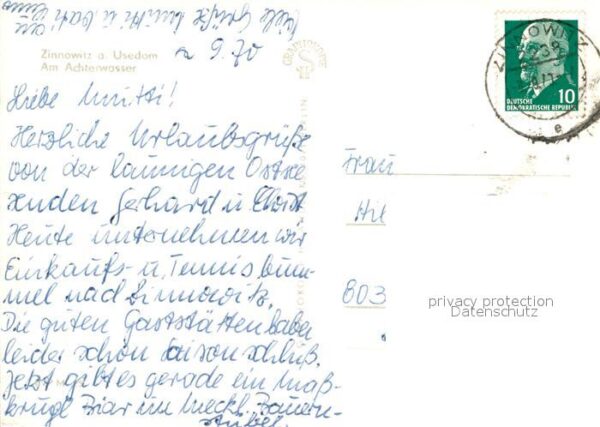 Viele Grüße Mutti u. Vati
9.70
Zinnowitz a. Usedom
Am Achterwasser
Liebe Mutti!
Herzliche Urlaubsgrüße
von der launigen Ostsee
senden Gerhard u. Christ
Heute unternehmen wir
Einkaufs- u. Tennisbum-
mel nach Zinnowitz.
Die guten Gaststätten haben
leider schon Saisonschluß.
Jetzt gibt es gerade ein Maß-
krügl Bier im Meckl. Bauern-
stüberl.
ZINNOWITZ
2238
e
10
DEUTSCHE
DEMOKRATISCHE REPUBLIK
Frau
803
privacy protection
Datenschutz